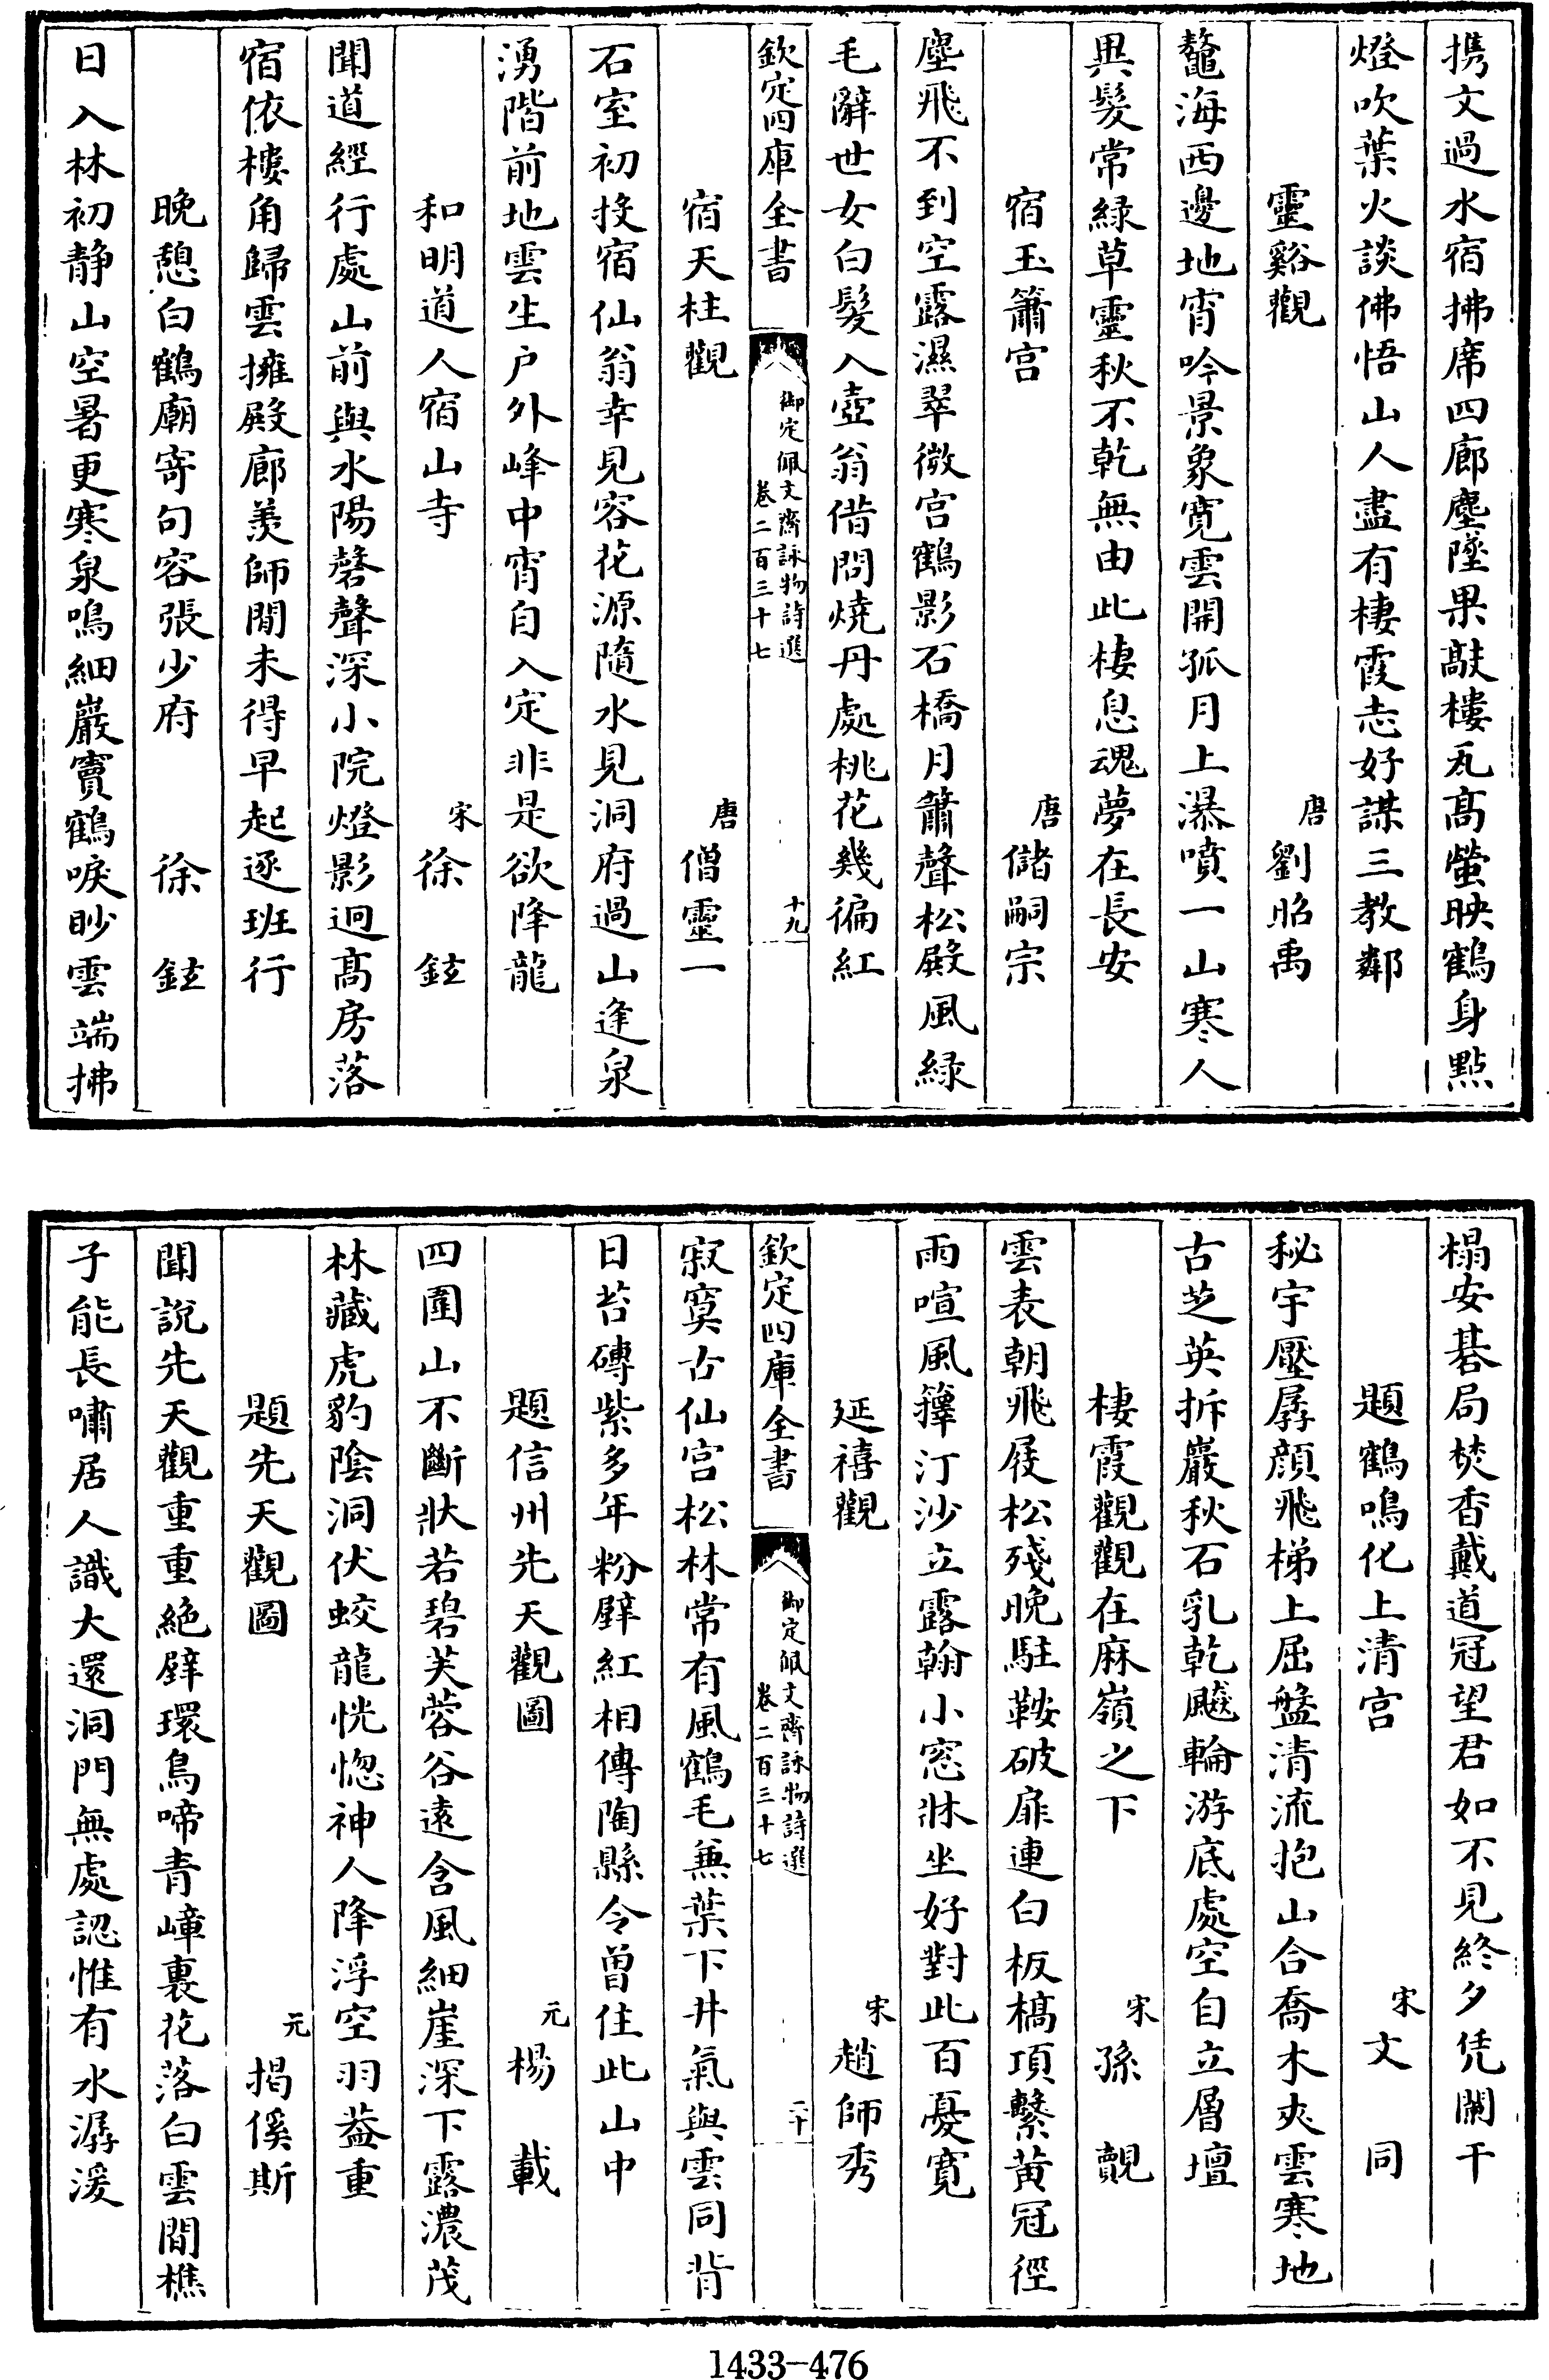 携文過水宿拂席四廊塵墜果敲樓瓦髙螢映鶴身㸃
燈吹葉火談佛悟山人盡有棲霞志好謀三教鄰
靈谿觀　唐劉昭禹
鼇海西邊地宵吟景象寛雲開孤月上瀑噴一山寒人
異髮常緑草靈秋不乾無由此棲息魂夢在長安
宿玉簫宫　唐儲嗣宗
塵飛不到空露濕翠微宫鶴影石橋月簫聲松殿風緑
毛辭世女白髮入壺翁借問燒丹處桃花幾徧紅
欽定四庫全書　御定佩文齋詠物詩選　卷二百三十七　十九
宿天柱觀　唐僧靈一
石室初投宿仙翁幸見容花源隨水見洞府過山逢泉
湧階前地雲生户外峰中宵自入定非是欲降龍
和明道人宿山寺　宋徐鉉
聞道經行處山前與水陽磬聲深小院燈影迥髙房落
宿依樓角歸雲擁殿廊羨師閒未得早起逐班行
晚憩白鶴廟寄句容張少府　徐鉉
日入林初静山空暑更寒泉鳴細巖竇鶴唳眇雲端拂
榻安碁局焚香戴道冠望君如不見終夕凭闌干
題鶴鳴化上清宫　宋文同
秘宇壓孱顔飛梯上屈盤清流抱山合喬木夾雲寒地
古芝英拆巖秋石乳乾飈輪游底處空自立層壇
棲霞觀觀在麻嶺之下　宋孫覿
雲表朝飛屐松殘晚駐鞍破扉連白板槁項繫黄冠徑
雨喧風籜汀沙立露翰小窓牀坐好對此百憂寛
延禧觀　宋趙師秀
欽定四庫全書　御定佩文齋詠物詩選　卷二百三十七　二十
寂寞古仙宫松林常有風鶴毛兼葉下井氣與雲同背
日苔磚紫多年粉壁紅相傳陶縣令曽住此山中
題信州先天觀圖　元楊載
四圍山不斷狀若碧芙蓉谷遠含風細崖深下露濃茂
林藏虎豹陰洞伏蛟龍恍惚神人降浮空羽葢重
題先天觀圖　元揭傒斯
聞說先天觀重重絶壁環鳥啼青嶂裏花落白雲間樵
子能長嘯居人識大還洞門無處認惟有水潺湲
1433-476